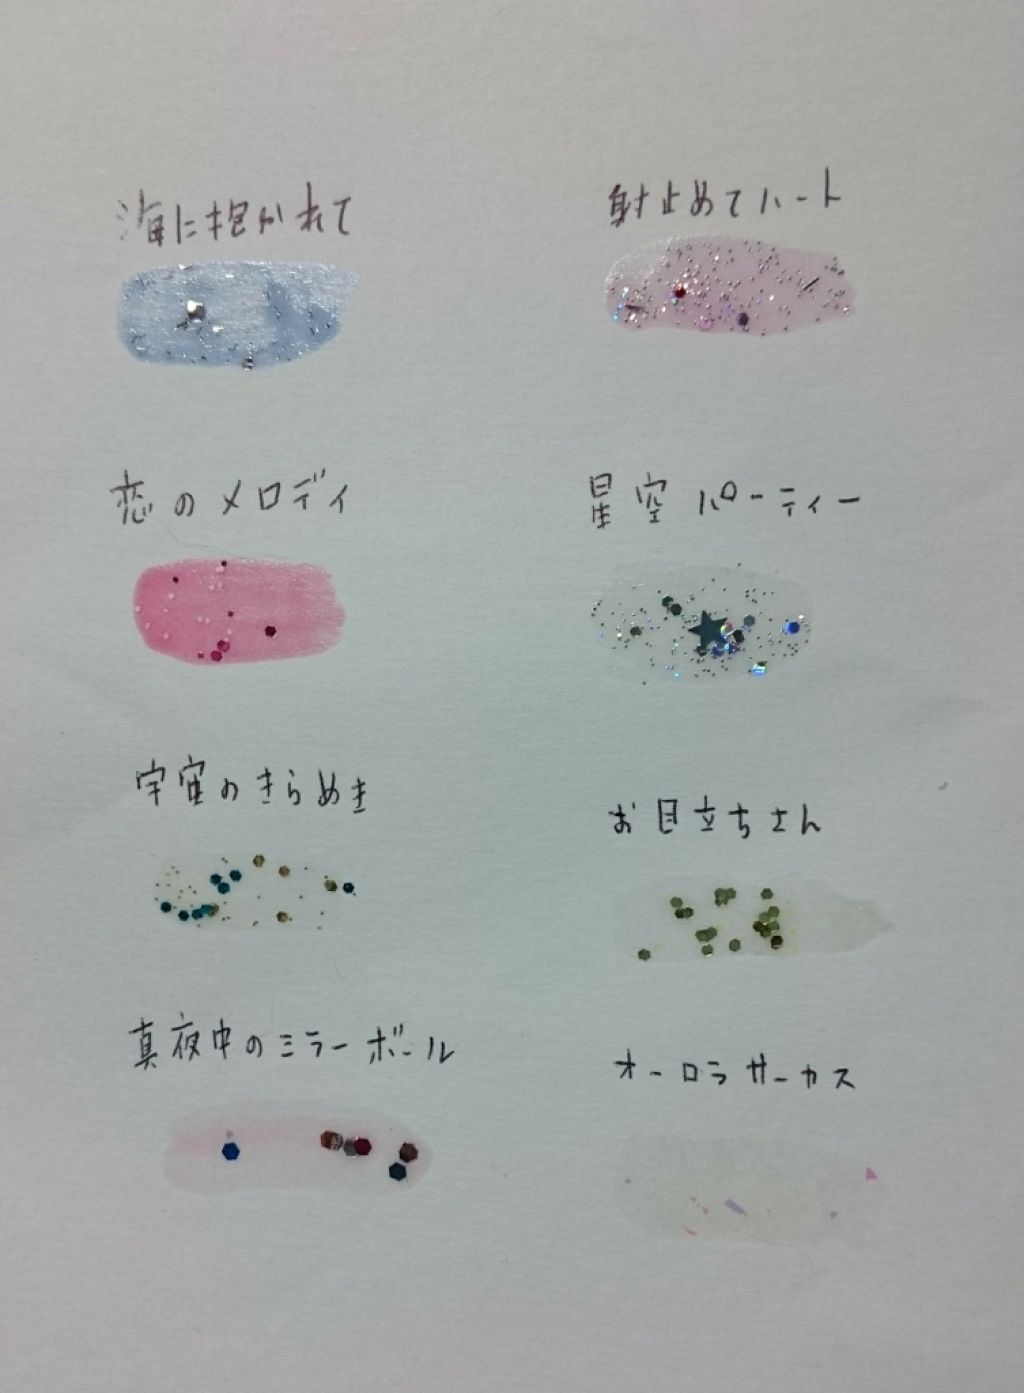 海に抱かれて
射止めてハート
恋のメロディ
星空パーティー
宇宙のきらめき
お目立ちさん
真夜中のミラーボール
オーロラサーカス